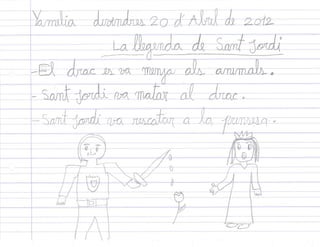 Yamilia divendres 20 d'Abril de 2012
La llegenda de Sant Jordi
- El drac es va menja als animals.
- Sant Jordi va matar al drac.
- Sant Jordi va rescatar a la prinsesa.